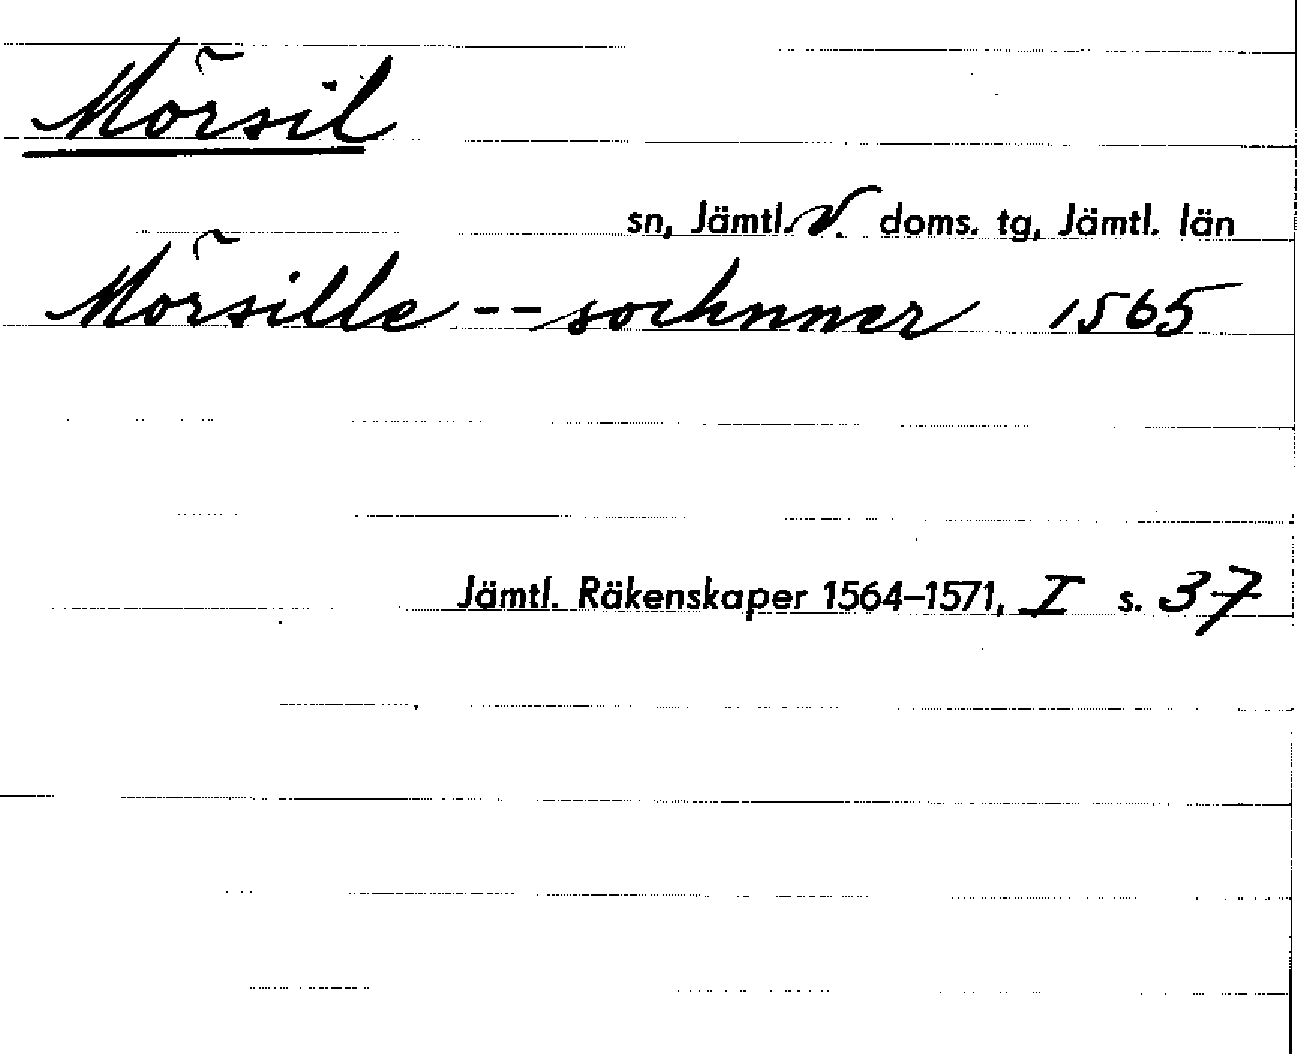 Mörsil
sn, Jämtl. V. doms. tg, Jämtl. län
Mörsille -- sochnner 1565
Jämtl. Räkenskaper 1564–1571, I s. 37